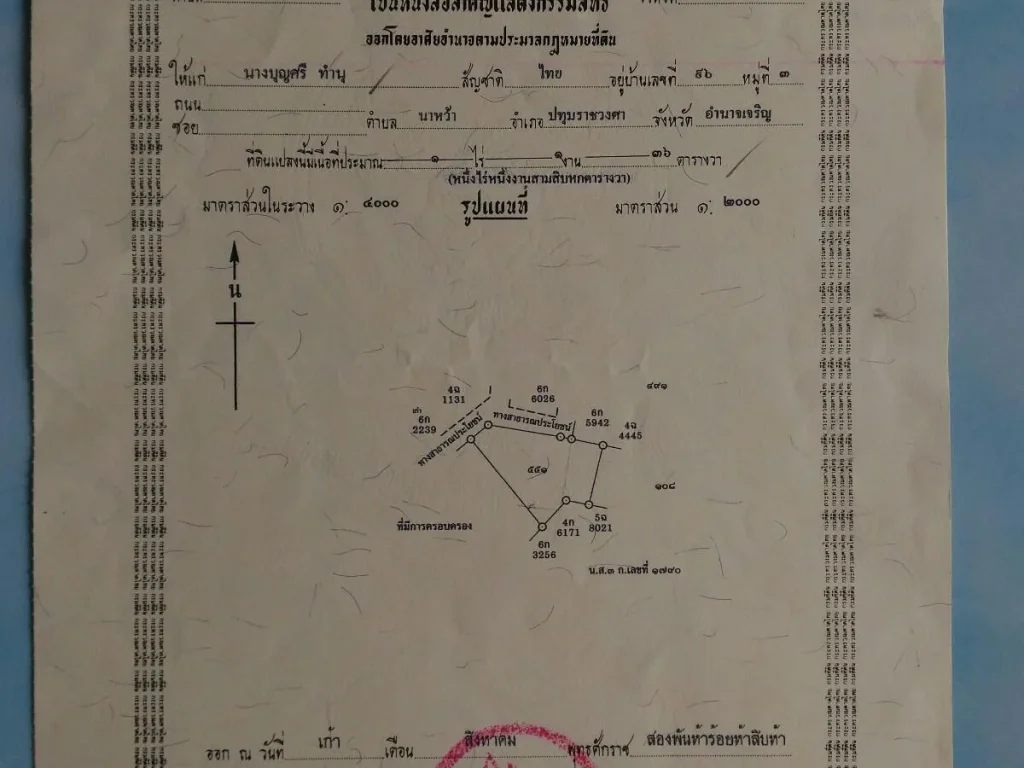 เป็นหนังสือสำคัญแสดงกรรมสิทธิ์
ออกโดยอาศัยอำนาจตามประมวลกฎหมายที่ดิน
ให้แก่ นางบุญศรี ทำนุ สัญชาติ ไทย อยู่บ้านเลขที่ ๙๖ หมู่ที่ ๓
ถนน
ซอย ตำบล นาหว้า อำเภอ ปทุมราชวงศา จังหวัด อำนาจเจริญ
ที่ดินแปลงนี้มีเนื้อที่ประมาณ ๑ ไร่ ๑ งาน ๓๖ ตารางวา
(หนึ่งไร่หนึ่งงานสามสิบหกตารางวา)
มาตราส่วนในระวาง ๑: ๔๐๐๐ รูปแผนที่ มาตราส่วน ๑: ๒๐๐๐
น
4ฉ
1131
6ก
6026
๔๙๑
6ก
2239
6ก
5942
4ฉ
4445
ทางสาธารณประโยชน์
ทางสาธารณประโยชน์
๕๕๑
๑๐๘
ที่มีการครอบครอง
4ก
6171
5ฉ
8021
6ก
3256
น.ส.๓ ก.เลขที่ ๑๗๙๐
ออก ณ วันที่ เก้า เดือน สิงหาคม พุทธศักราช สองพันห้าร้อยห้าสิบห้า